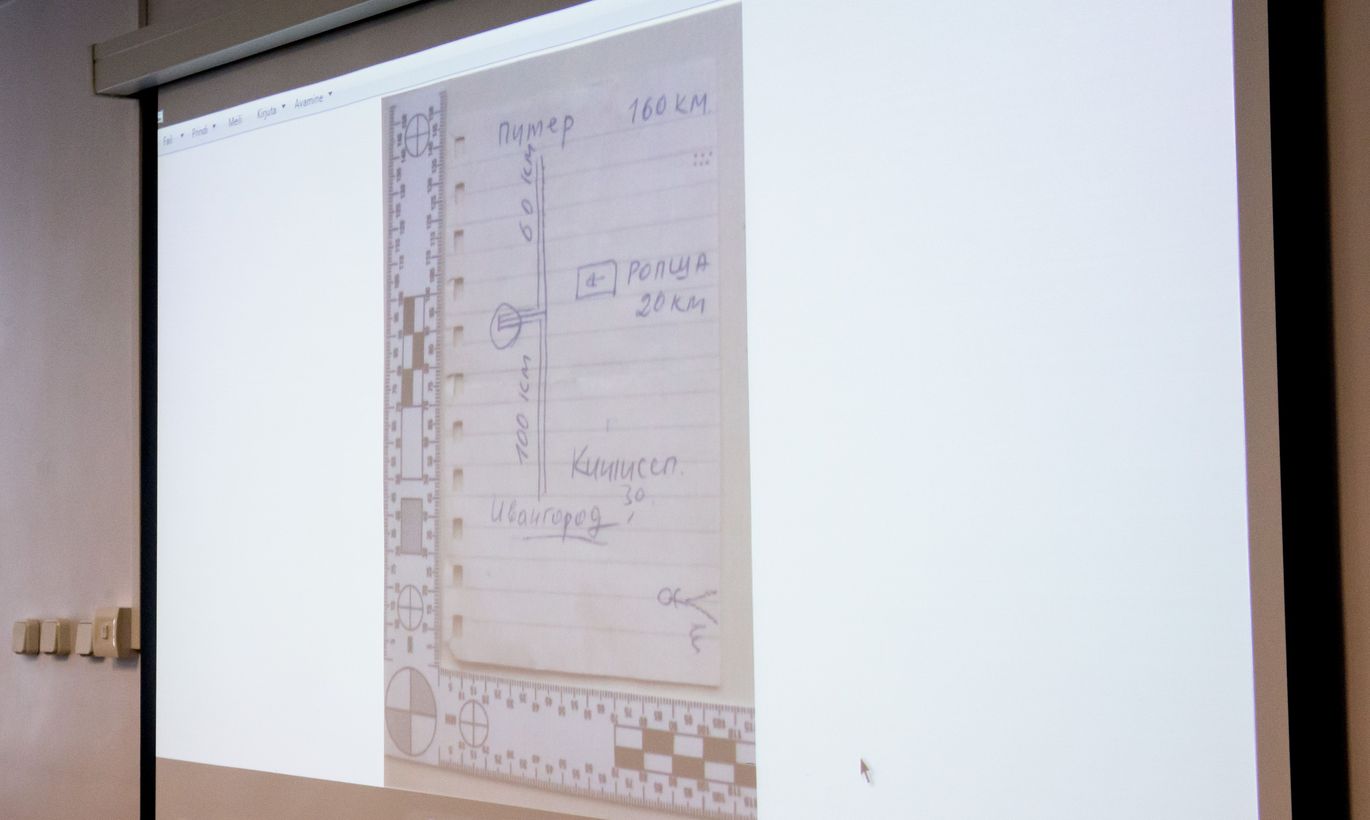 Fail Prindi Meili Kirjuta Avamine
Питер 160 км
60 км
РОПША
20 км
100 км
Кингисеп.
30
Ивангород